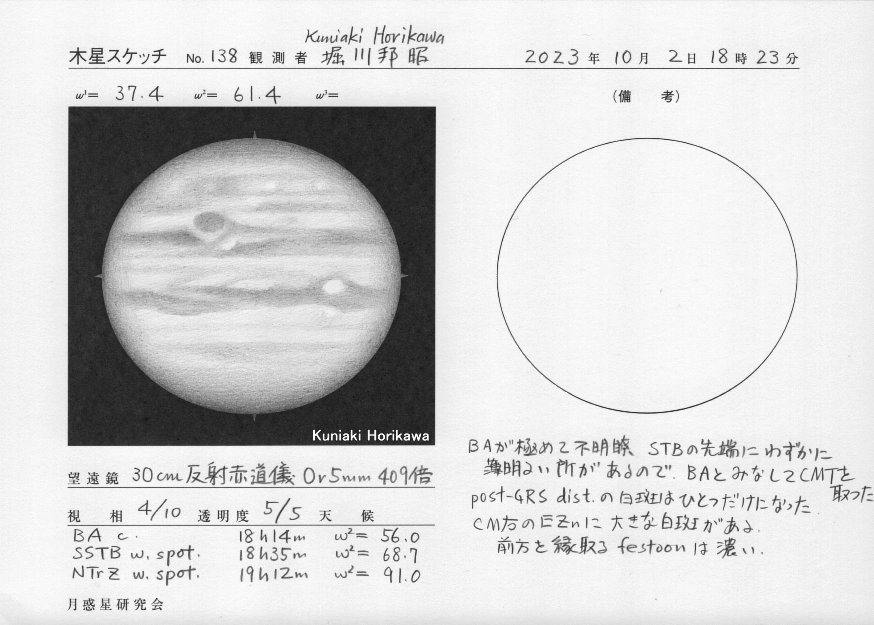 Kuniaki Horikawa
木星スケッチ No. 138 観測者 堀川邦昭 2023年 10月 2日 18時 23分
ω¹= 37.4 ω²= 61.4 ω³=
(備 考)
Kuniaki Horikawa
望遠鏡 30cm反射赤道儀 Or5mm 409倍
視 相 4/10 透明度 5/5 天 候
BA c. 18h14m ω²= 56.0
SSTB w. spot. 18h35m ω²= 68.7
NTrZ w. spot. 19h12m ω²= 91.0
月惑星研究会
BAが極めて不明瞭 STBの先端にわずかに
薄明るい所があるので、BAとみなしてCMTを取った
post-GRS dist.の白斑はひとつだけになった.
CM右のEZnに大きな白斑がある.
前方を縁取るfestoonは濃い.